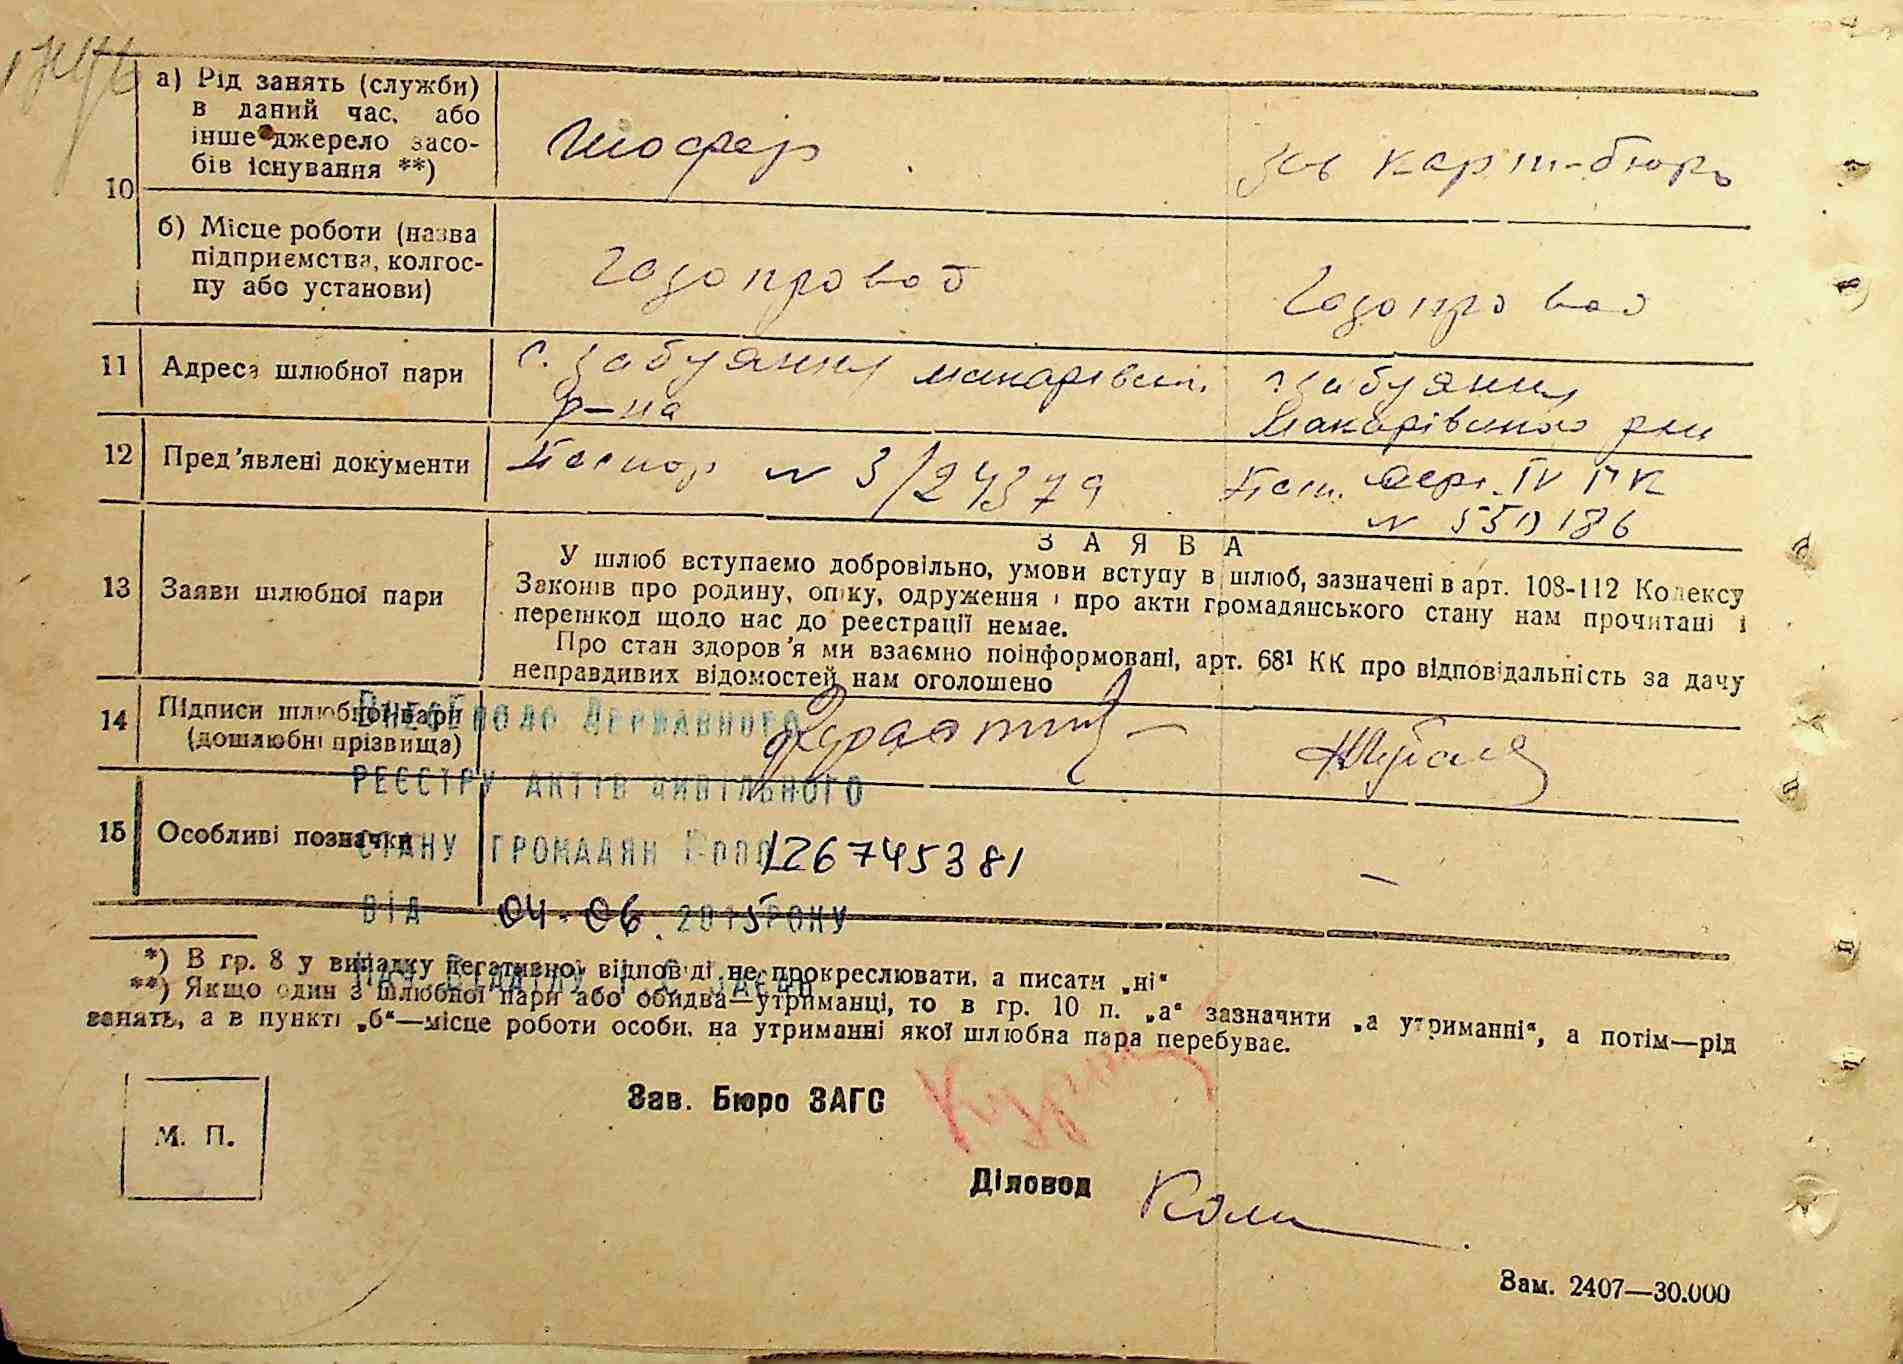 10
а) Рід занять (служби)
в даний час, або
інше джерело засо-
бів існування **)
Шофер
зав карт-бюро
б) Місце роботи (назва
підприємства, колгос-
пу або установи)
Газопровод
Газопровод
11 Адреса шлюбної пари
с. Забуяння Макарівськ.
р-на
с. Забуяння
Макарівського р-ну
12 Пред'явлені документи
Паспор № 3/24379
Пасп. сері. IV ПК
№ 550186
13 Заяви шлюбної пари
ЗАЯВА
У шлюб вступаємо добровільно, умови вступу в шлюб, зазначені в арт. 108-112 Кодексу
Законів про родину, опіку, одруження і про акти громадянського стану нам прочитані і
перешкод щодо нас до реєстрації немає.
Про стан здоров'я ми взаємно поінформовані, арт. 68¹ КК про відповідальність за дачу
неправдивих відомостей нам оголошено
14 Підписи шлюбної пари
(дошлюбні прізвища)
Внесено до Державного
реєстру актів цивільного
15 Особливі позначки
стану громадян 126745381
—
від 04.06.2015 року
*) В гр. 8 у випадку негативної відповіді не прокреслювати, а писати „ні“
**) Якщо один з шлюбної пари або обидва—утриманці, то в гр. 10 п. „а“ зазначити „а утриманні“, а потім—рід
занять, а в пункті „б“—місце роботи особи, на утриманні якої шлюбна пара перебуває.
Зав. Бюро ЗАГС
М. П.
Діловод
Зам. 2407—30.000